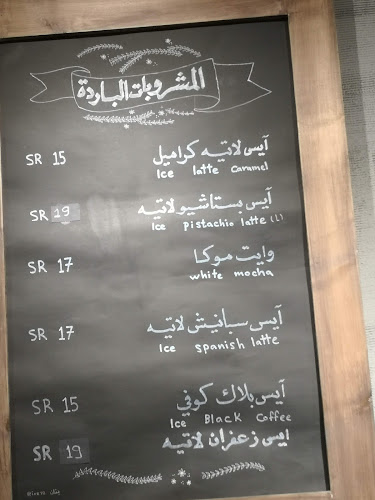 المشروبات الباردة
آيس لاتيه كراميل SR 15
Ice latte caramel
آيس بستاشيو لاتيه SR 19
Ice pistachio latte (L)
وايت موكا SR 17
white mocha
آيس سبانيش لاتيه SR 17
Ice spanish latte
آيس بلاك كوفي SR 15
Ice Black Coffee
ايسى زعفران لاتيه SR 19